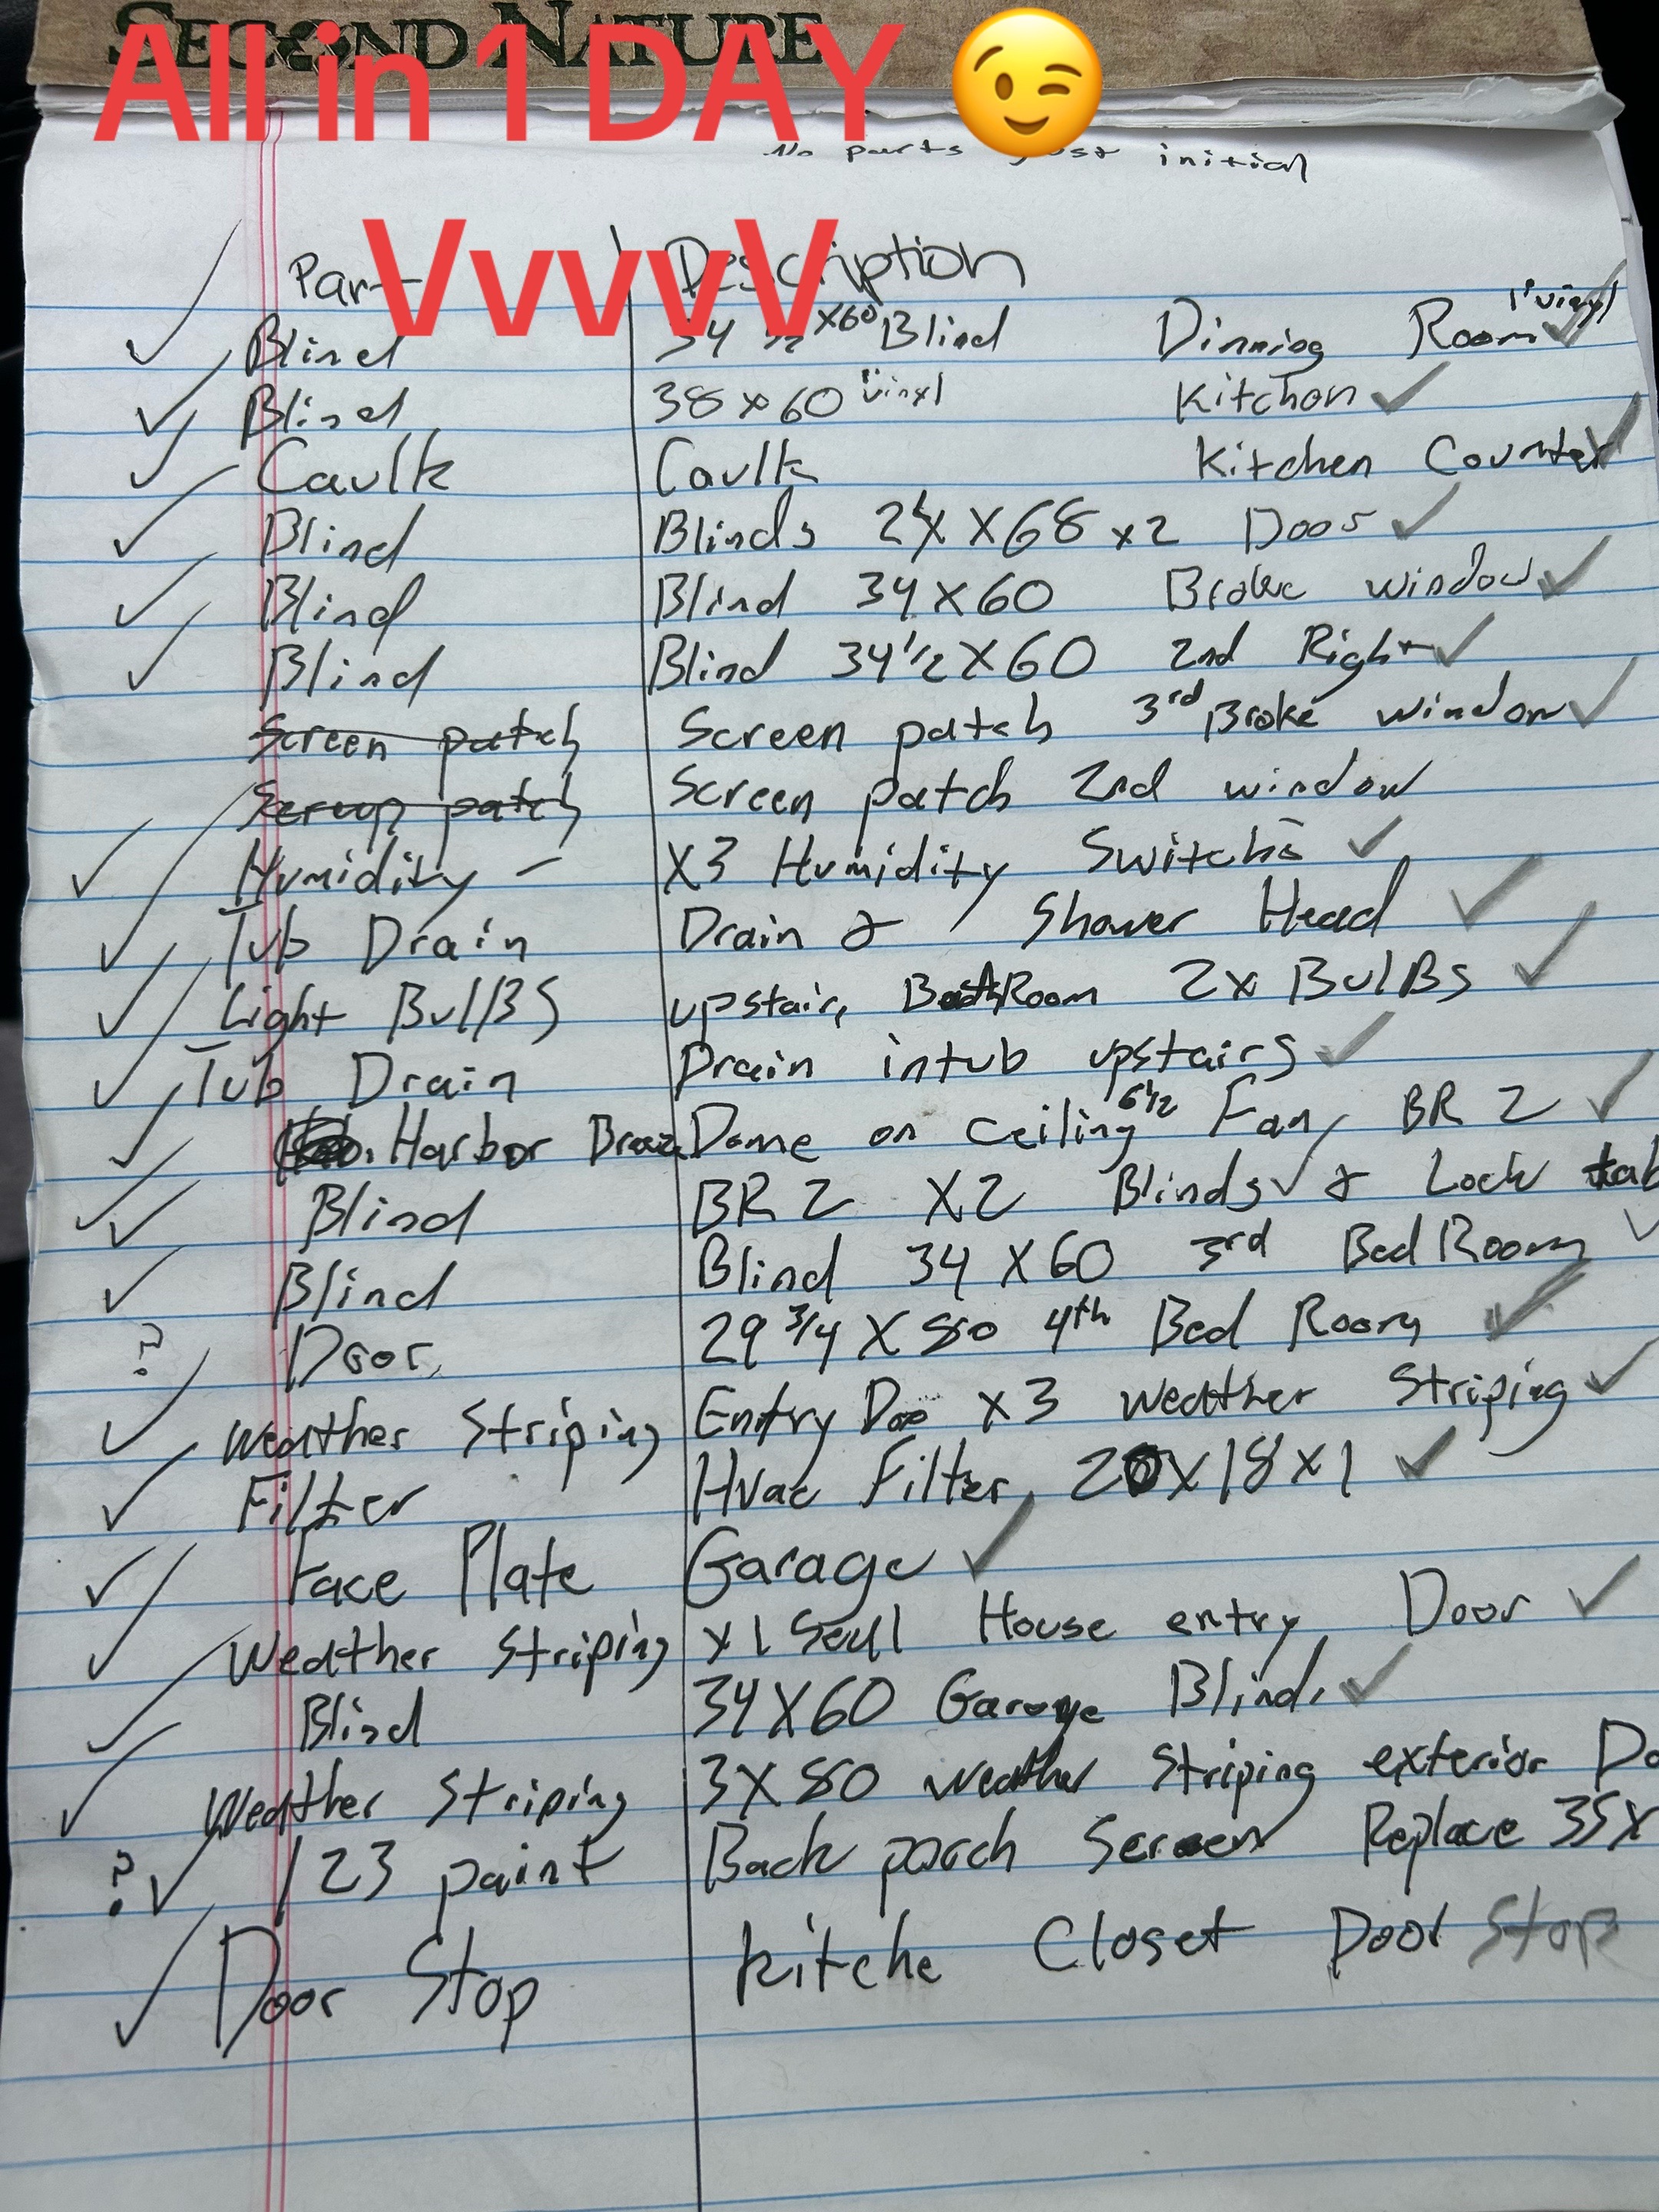 SECOND NATURE
All in 1 DAY 😉
No parts just initial
VvvvvV
Part Description
Blind 34 1/2 x60 Blind Dinning Room 1" vinyl
Blind 38 x 60 1" vinyl Kitchen
Caulk Caulk Kitchen Counter
Blind Blinds X68 x2 Door
Blind Blind 34 X 60 Broke window
Blind Blind 34 1/2 X 60 2nd Right
Screen patch Screen patch 3rd Broke window
patch Screen patch 2nd window
Humidity - X3 Humidity Switchs
Tub Drain Drain & Shower Head
Light BulBS upstair, BathRoom 2x BulBs
Tub Drain Drain in tub upstairs
Harbor Breez Dome on ceiling 6 1/2 Fan, BR 2
Blind BR 2 X2 Blinds & Lock tab
Blind Blind 34 X 60 3rd Bed Room
Door 29 3/4 X 80 4th Bed Room
?
Weather Striping Entry Doo x3 weather Striping
Filter Hvac Filter, 20x18x1
Face Plate Garage
Weather Striping x1 Seal House entry Door
Blind 34X60 Garage Blind,
Weather Striping 3X80 weather Striping exterior Do
? 123 paint Back porch Screen Replace 35X
Door Stop kitche Closet Door Stop